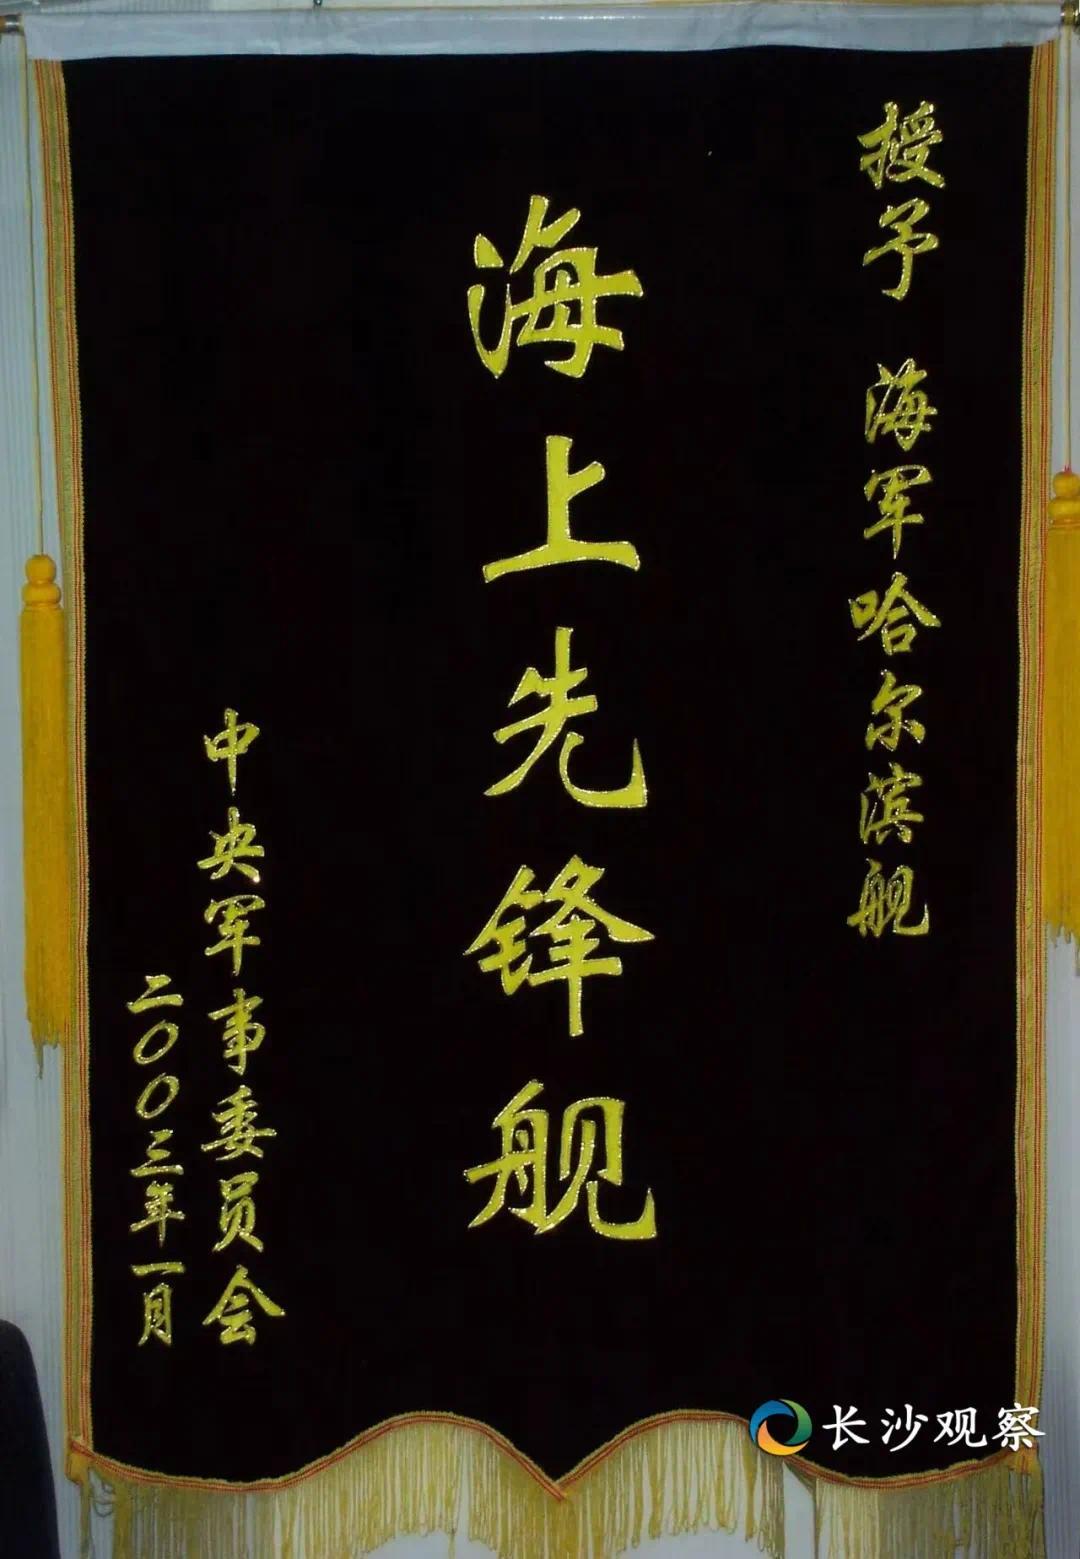 授予 海军哈尔滨舰
海上先锋舰
中央军事委员会
二〇〇三年一月
长沙观察